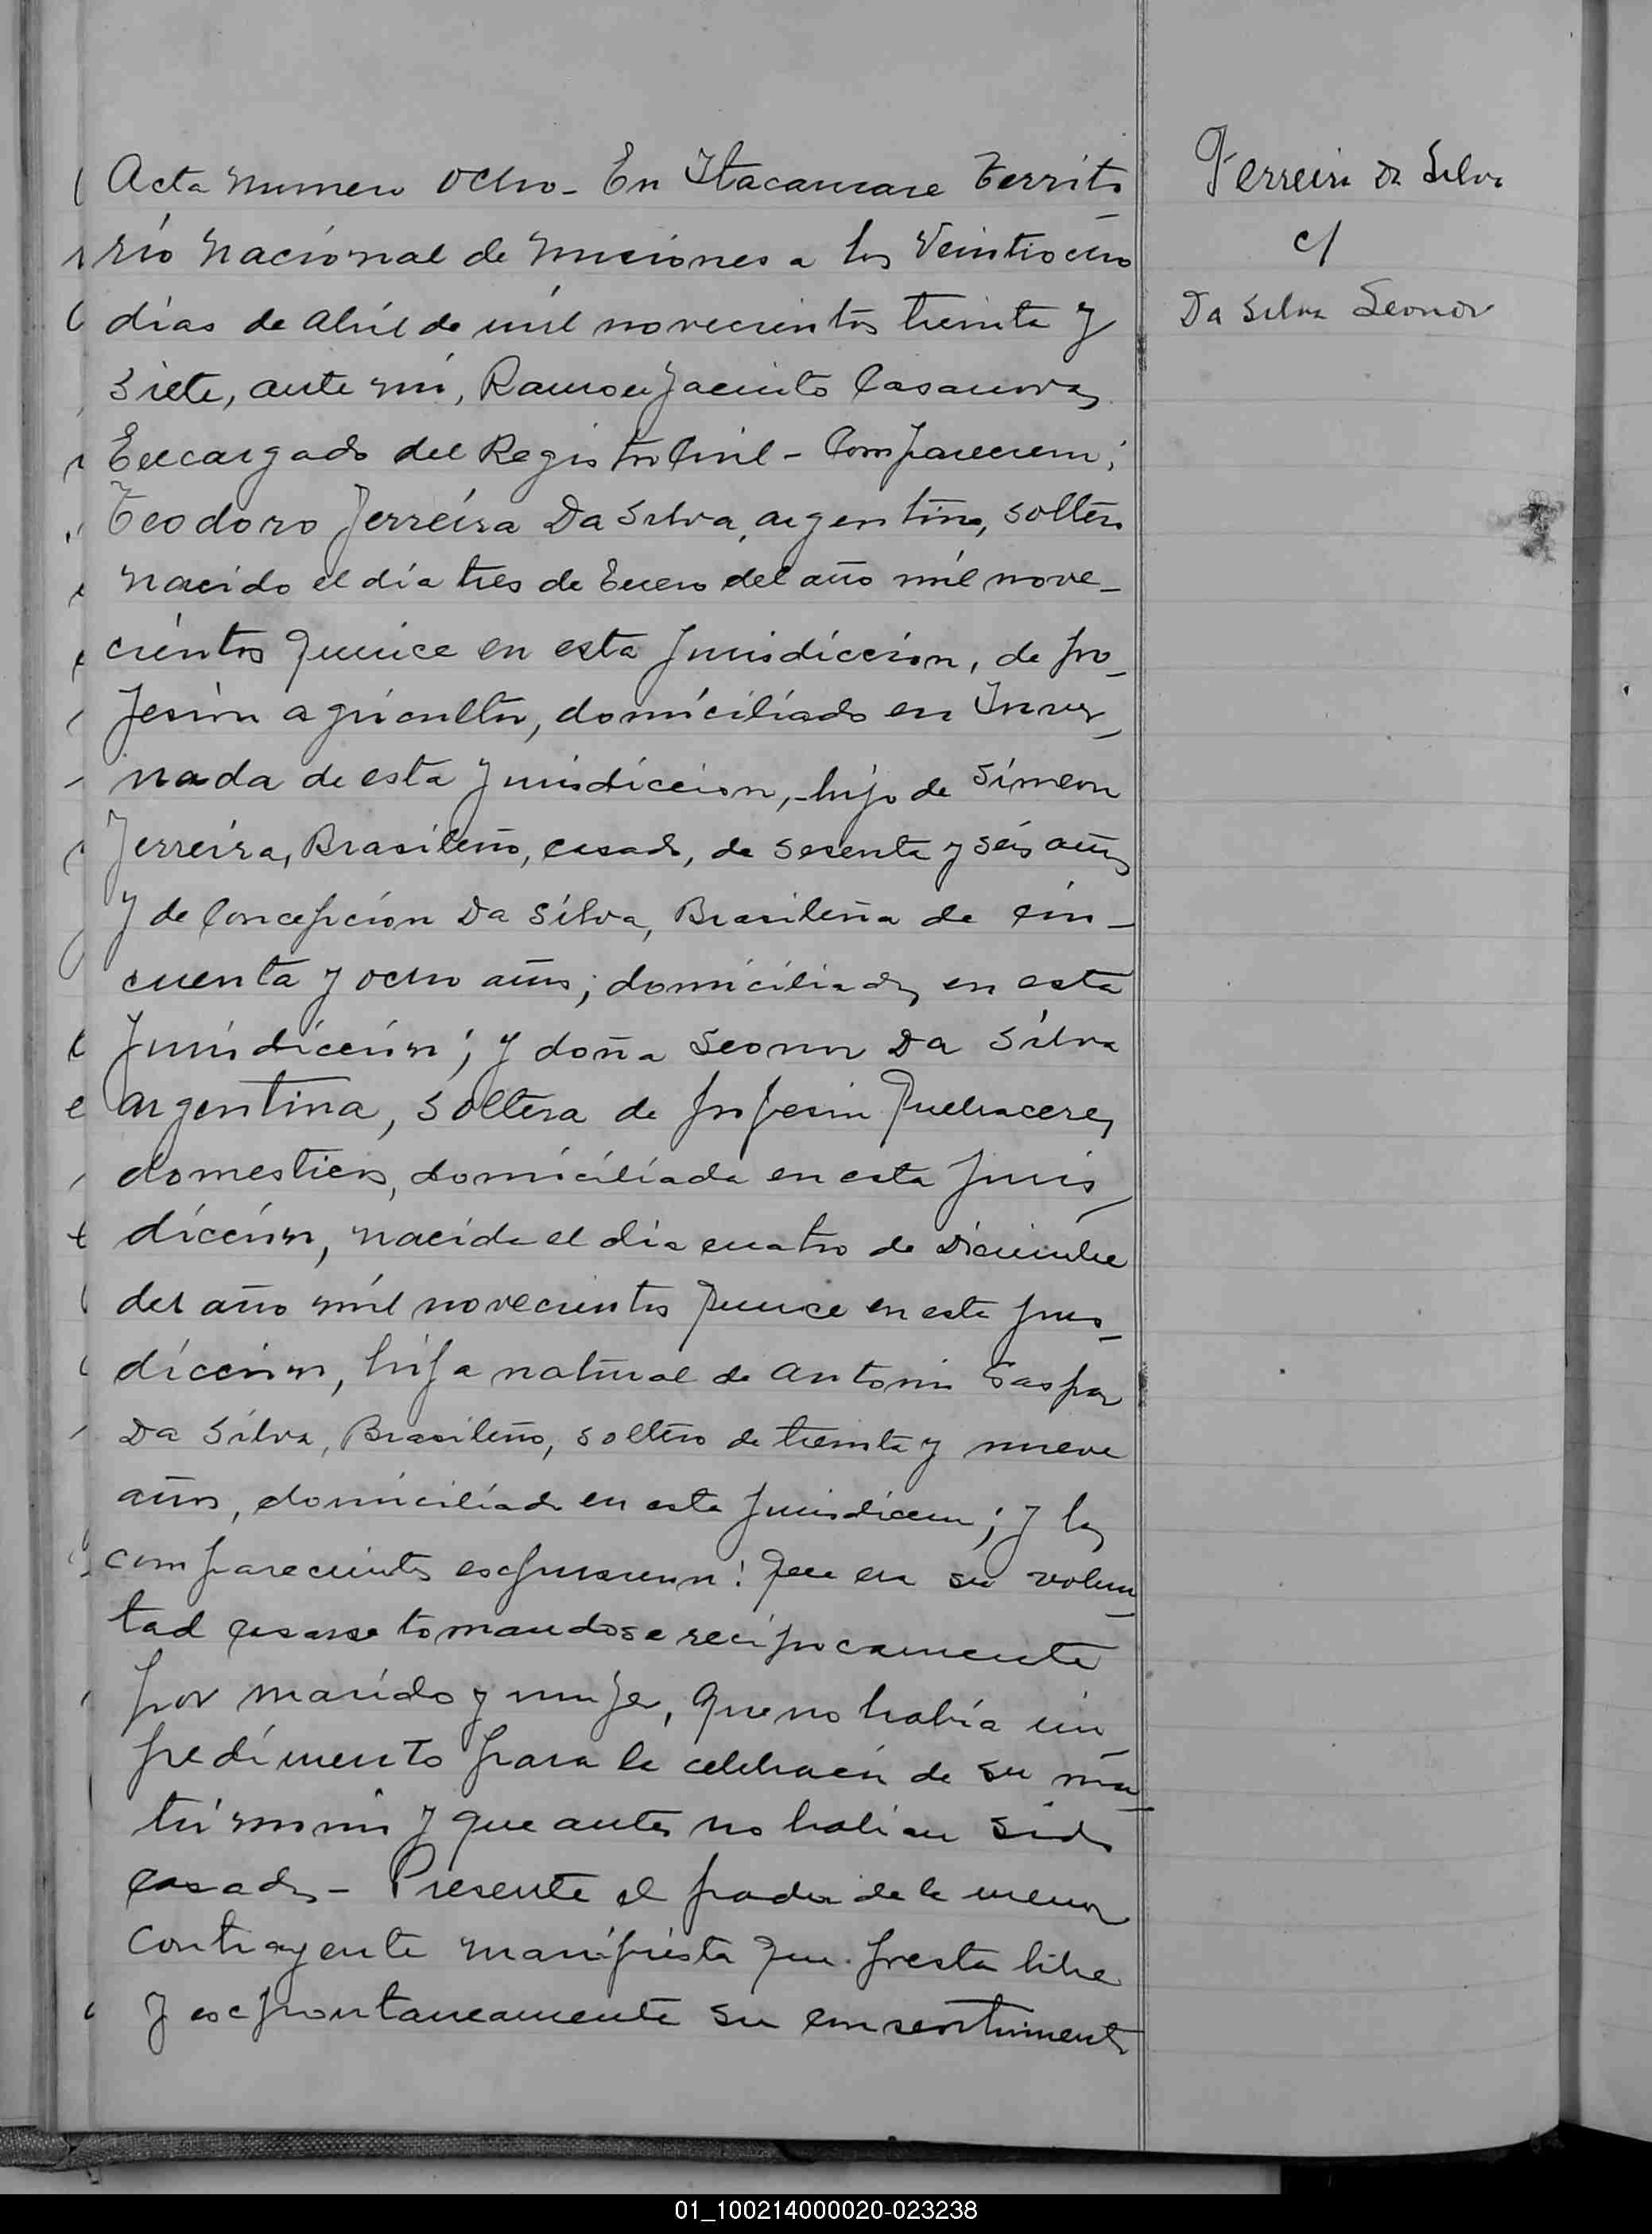 Acta numero ocho - En Itacaruare Territo
rio Nacional de Misiones a los Veintiocho
días de Abril de mil novecientos treinta y
siete, ante mi, Ramon Jacinto Casanova,
Encargado del Registro Civil - Comparecen:
Teodoro Ferreira Da Silva, argentino, soltero
nacido el día tres de Enero del año mil nove-
cientos quince en esta Jurisdiccion, de pro-
fesion agricultor, domiciliado en Inver-
nada de esta Jurisdiccion, - hijo de Simeon
Ferreira, Brasileño, casado, de sesenta y seis años
y de Concepcion Da Silva, Brasileña de cin-
cuenta y ocho años; domiciliados en esta
Jurisdiccion; y doña Leonor Da Silva
argentina, soltera de profesion Quehaceres
domesticos, domiciliada en esta Juris-
diccion, nacida el dia cuatro de Diciembre
del año mil novecientos quince en esta juris-
diccion, hija natural de Antonio Gaspar
Da Silva, Brasileño, soltero de treinta y nueve
años, domiciliado en esta Jurisdiccion; y los
comparecientes expusieron: Que era su volun-
tad casarse tomandose reciprocamente
por marido y mujer, que no había im-
pedimento para la celebración de su ma-
trimonio y que antes no habian sido
casados - Presente el padre de la menor
contrayente manifiesta que presta libre
y expontaneamente su consentimiento
Ferreira Da Silva
c/
Da Silva Leonor
01_100214000020-023238